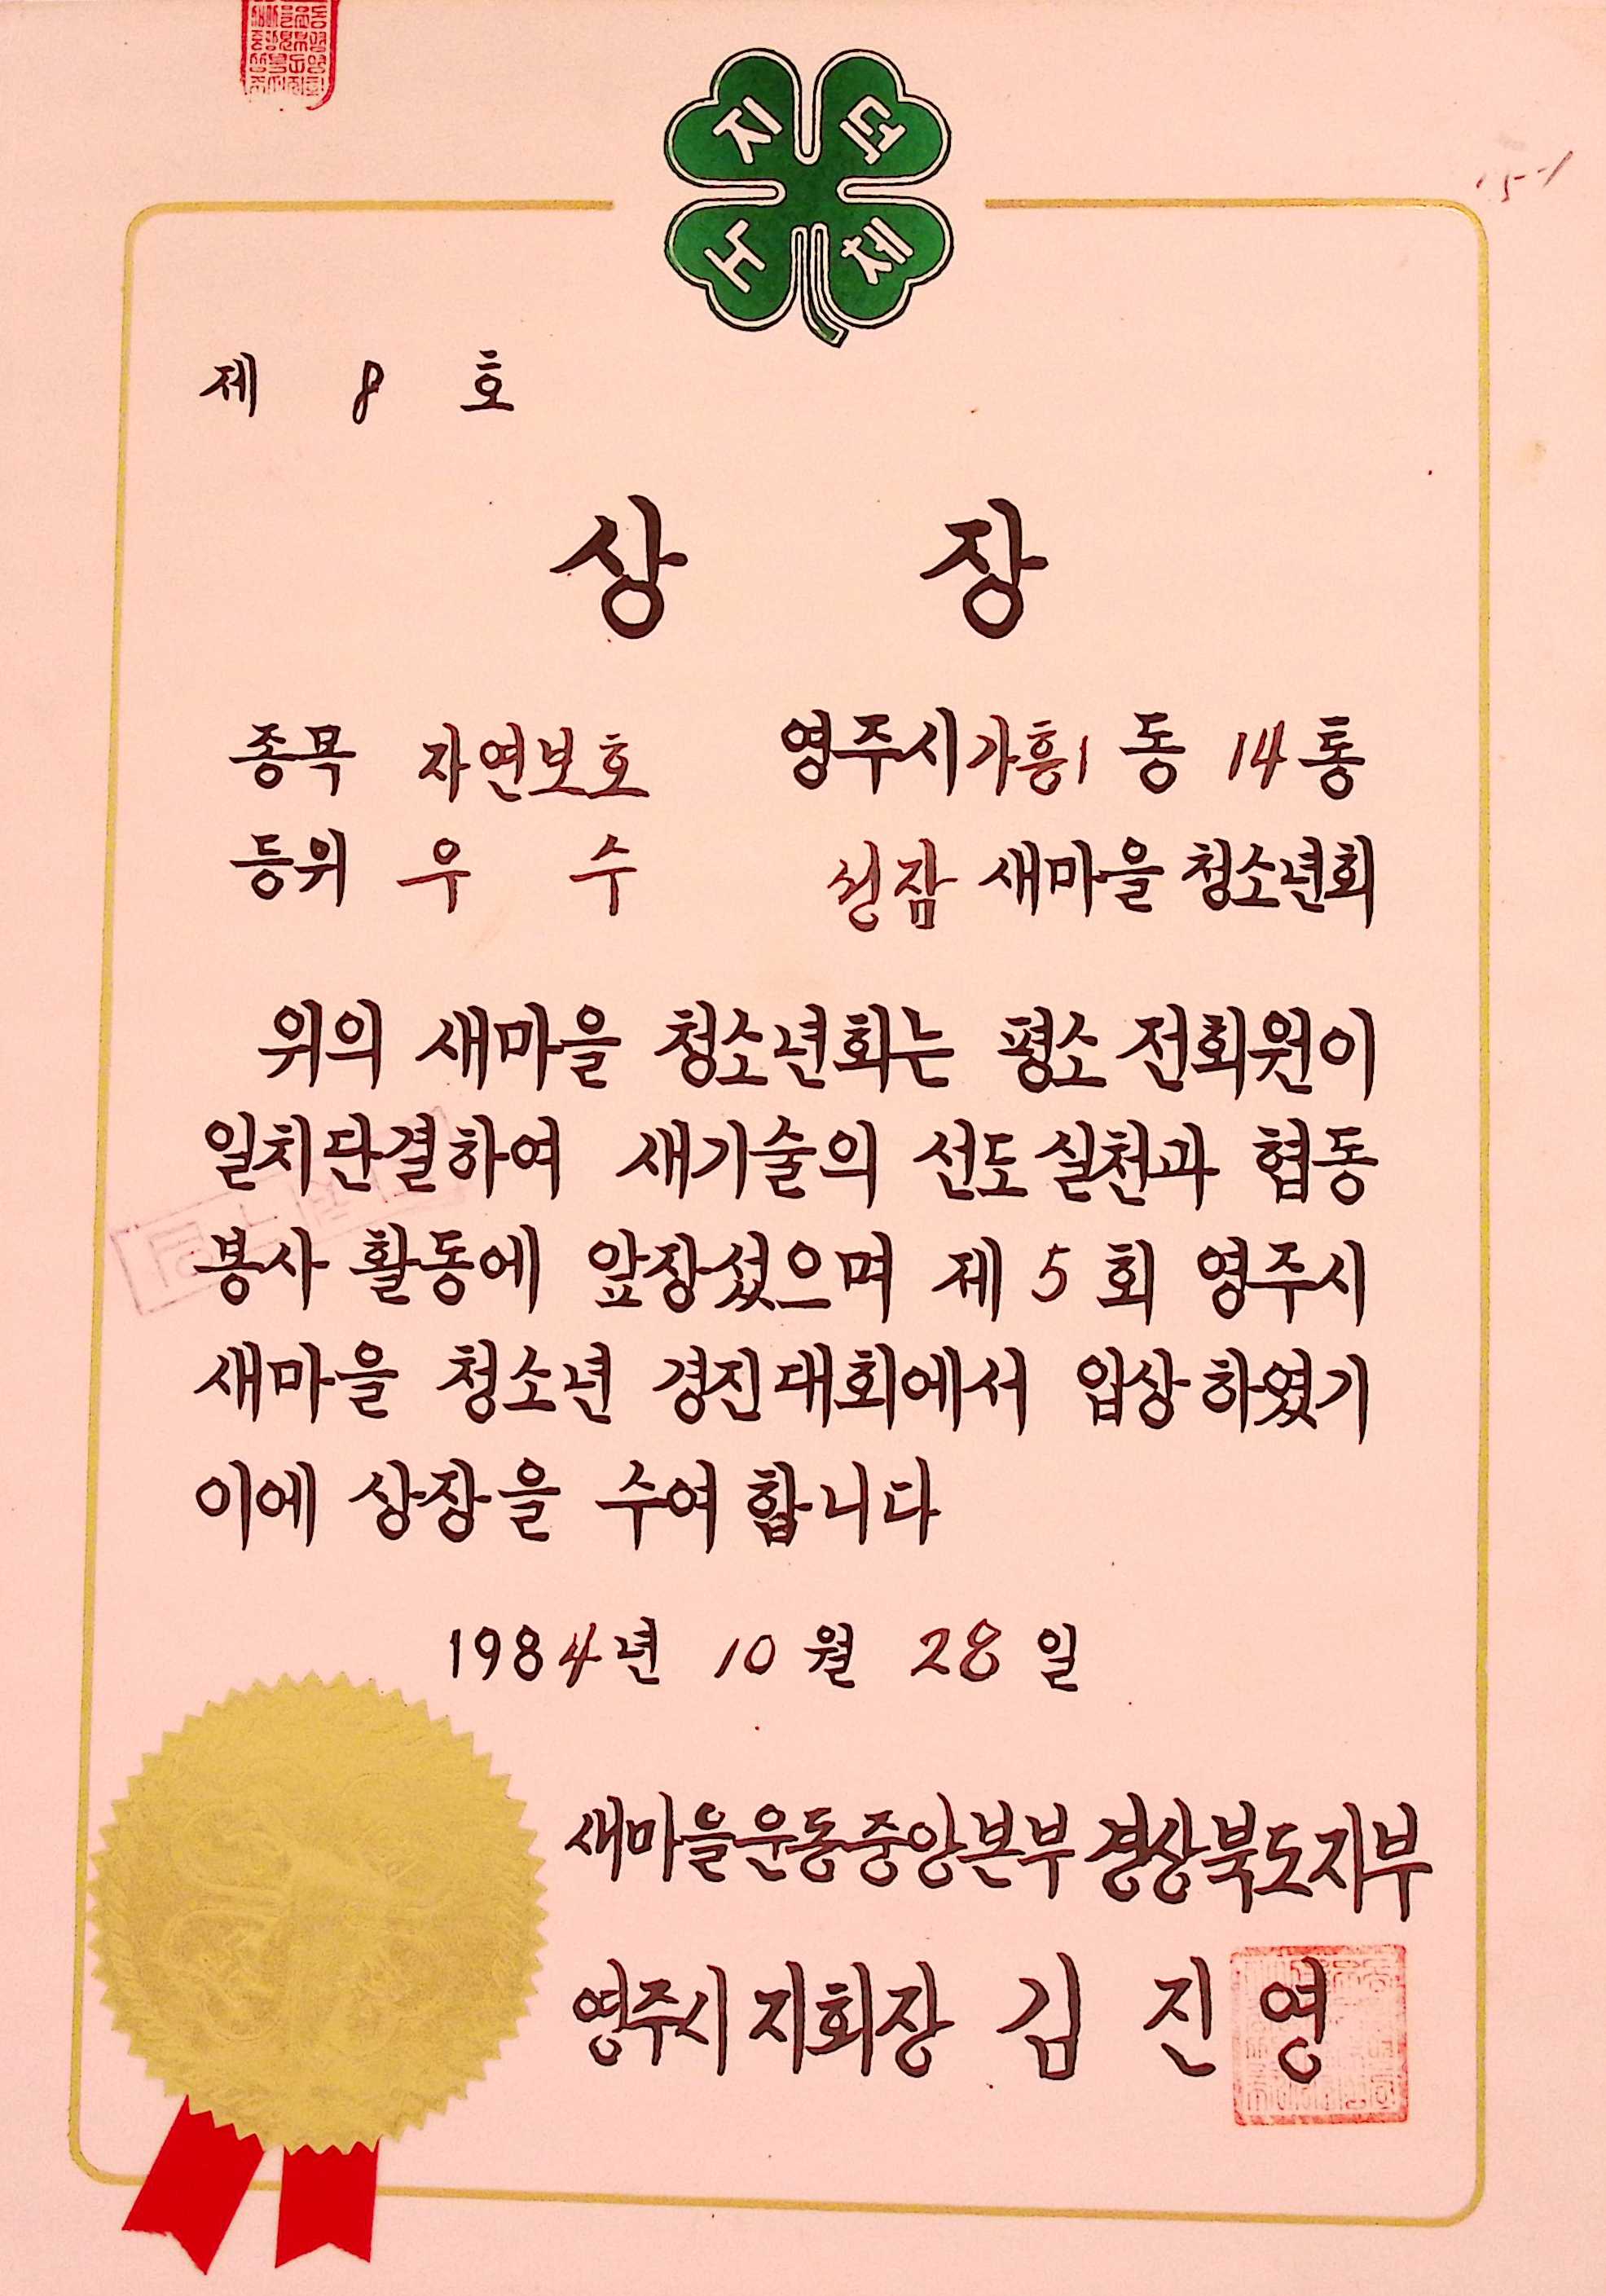 지 덕
노 체
제 8 호
상 장
종목 자연보호 영주시 가흥1동 14통
등위 우 수 선잠 새마을 청소년회
위의 새마을 청소년회는 평소 전회원이
일치단결하여 새기술의 선도 실천과 협동
봉사 활동에 앞장섰으며 제 5 회 영주시
새마을 청소년 경진대회에서 입상하였기
이에 상장을 수여합니다
1984년 10월 28일
새마을운동중앙본부 경상북도지부
영주시 지회장 김 진 영